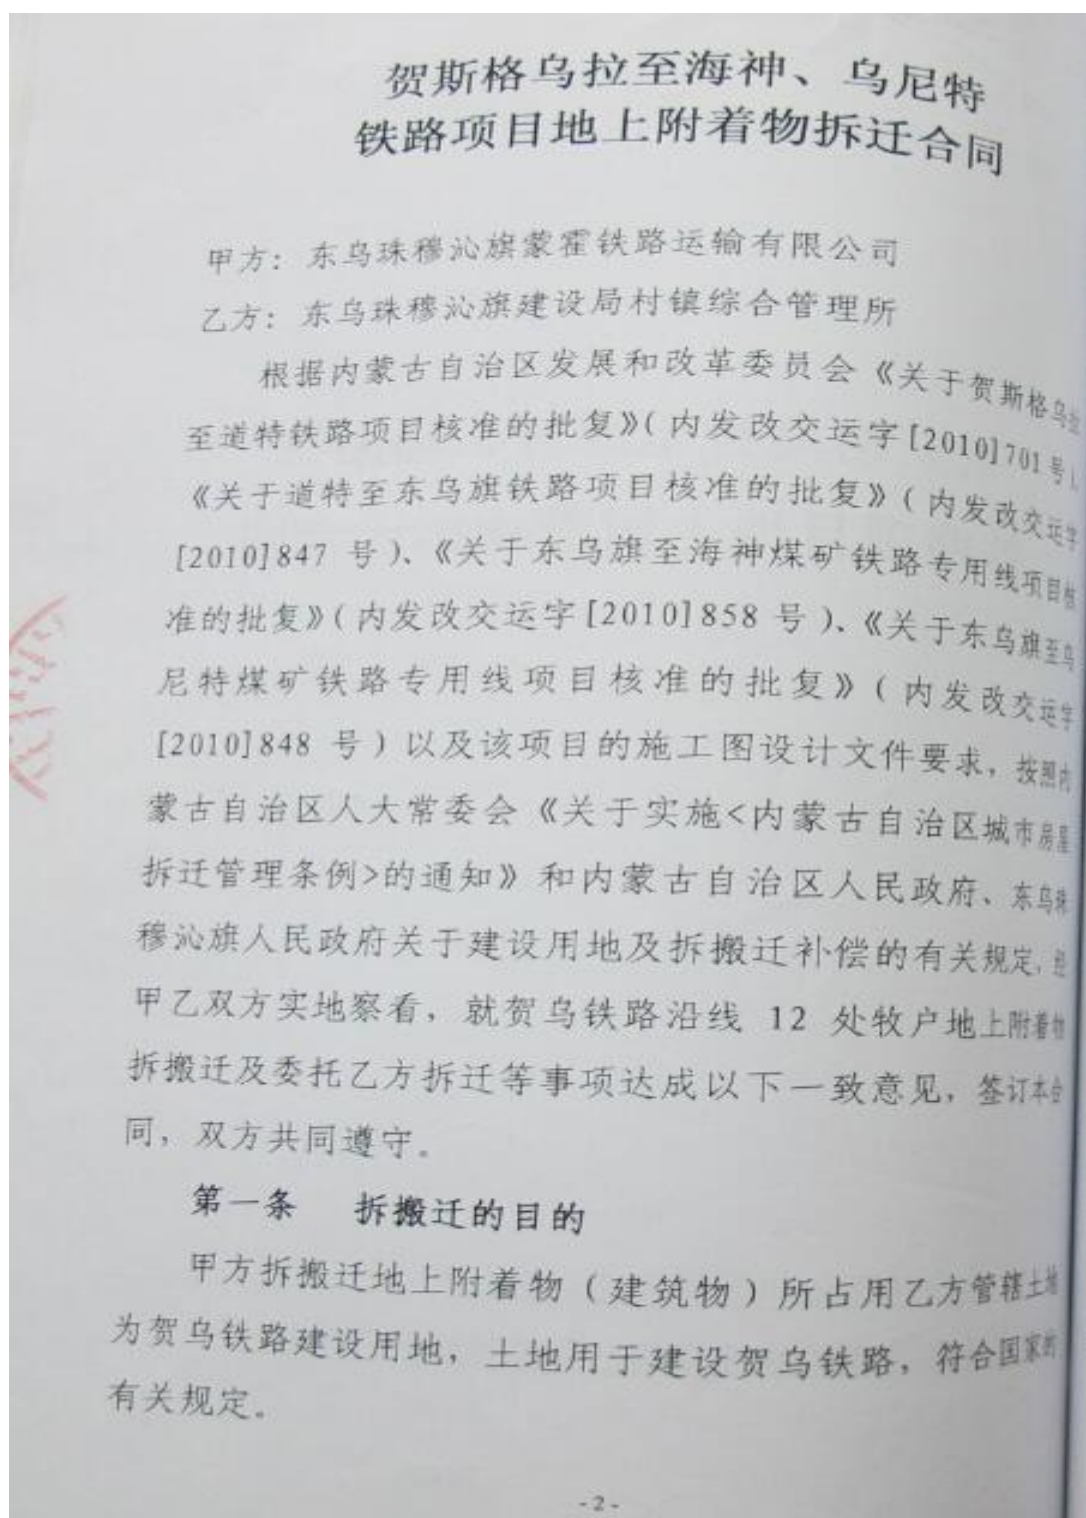 贺斯格乌拉至海神、乌尼特
铁路项目地上附着物拆迁合同
甲方：东乌珠穆沁旗蒙霍铁路运输有限公司
乙方：东乌珠穆沁旗建设局村镇综合管理所
根据内蒙古自治区发展和改革委员会《关于贺斯格乌拉
至道特铁路项目核准的批复》（内发改交运字[2010]701号）、
《关于道特至东乌旗铁路项目核准的批复》（内发改交运字
[2010]847 号）、《关于东乌旗至海神煤矿铁路专用线项目核
准的批复》（内发改交运字[2010]858 号）、《关于东乌旗至乌
尼特煤矿铁路专用线项目核准的批复》（内发改交运字
[2010]848 号）以及该项目的施工图设计文件要求，按照内
蒙古自治区人大常委会《关于实施<内蒙古自治区城市房屋
拆迁管理条例>的通知》和内蒙古自治区人民政府、东乌珠
穆沁旗人民政府关于建设用地及拆搬迁补偿的有关规定，经
甲乙双方实地察看，就贺乌铁路沿线 12 处牧户地上附着物
拆搬迁及委托乙方拆迁等事项达成以下一致意见，签订本合
同，双方共同遵守。
第一条 拆搬迁的目的
甲方拆搬迁地上附着物（建筑物）所占用乙方管辖土地
为贺乌铁路建设用地，土地用于建设贺乌铁路，符合国家的
有关规定。
-2-